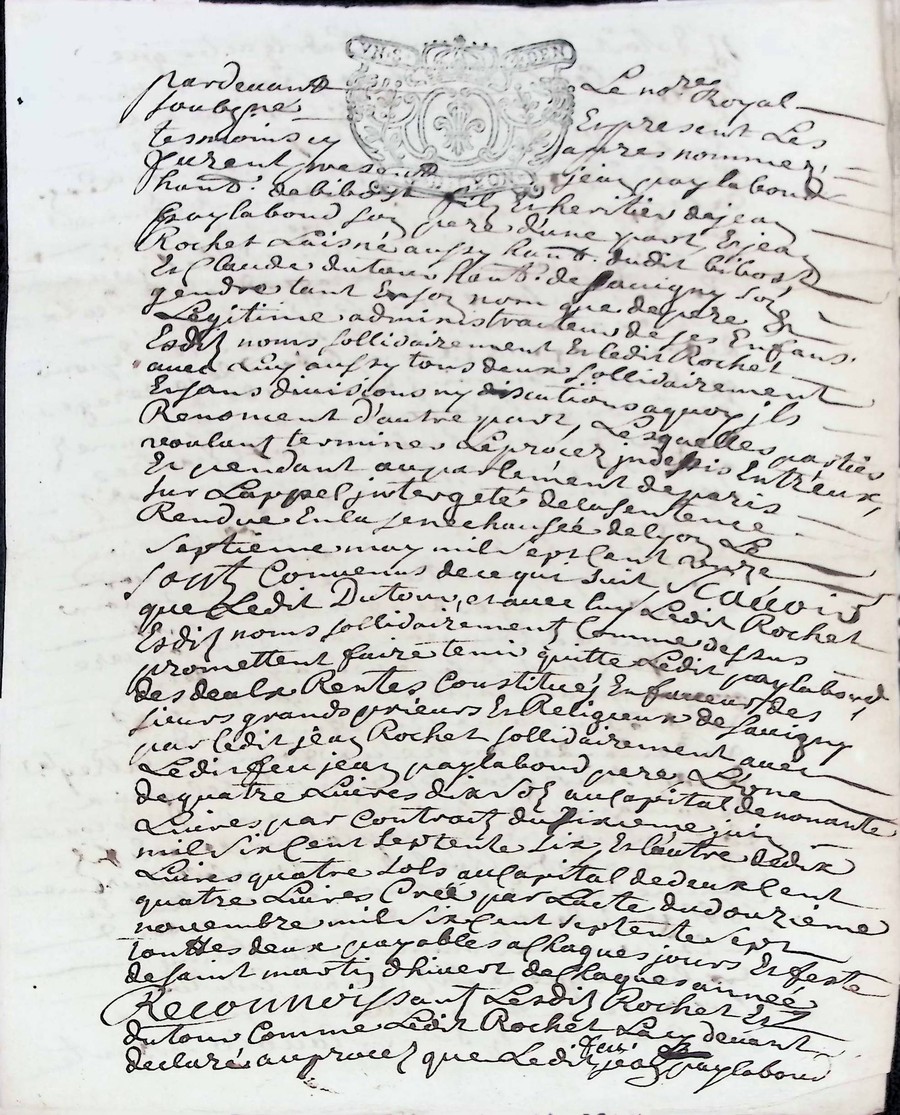 pardevant Le no.re Royal
soubigné Et present Les
tesmoins cy apres nommez,
furent presents jean paylaboud
hant. de bibost filz Et heritier de jean
paylaboud son pere d'une part, Et jean
Rochet Laisné aussy hant. dudit bibost
Et Claude dutour hant. de Savigny son
gendre tant En son nom que de pere Et
Legitime administrateur de ses Enfans.
Esdit noms sollidairement Et Ledit Rochet
avec Luy aussy tous deux sollidairement
Ensans divisions ny discutions aquoy ils
Renoncent d'autre part, Lesquelles parties
voulant terminer Le procez indessis Entr'eux,
Et pendant au parlement de paris
sur L'appel interjeté de la sentence
Rendue En la senechaussée de lyon Le
Septieme may mil Sept Cent onze
Sont Convenus de ce qui suit Scavoir
que Ledit Dutour, et avec luy Ledit Rochet
Esdit noms sollidairement Comme dessus
promettent faire tenir quitte Ledit paylaboud
des deux Rentes Constituéz En faveur des
sieurs grands prieurs Et Religieux de Savigny
par Ledit jean Rochet sollidairement avec
Ledit feu jean paylaboud pere L'une
de quatre Livres dix Solz au Capital de nonante
Livres par Contrait du sixieme juin
mil Six Cent Septente Six Et L'autre de dix
Livres quatre sols au Capital de deux Cent
quatre Livres Créé par L'acte du douzième
novembre mil Six Cent septente Sept
touttes deux payables a Chaques jours Et feste
de saint martin d'hivert de Chaques année
Reconnoissant Lesdit Rochet Et
dutour Comme Ledit Rochet La cy devant
declaré au procez que Ledit feu jean paylaboud